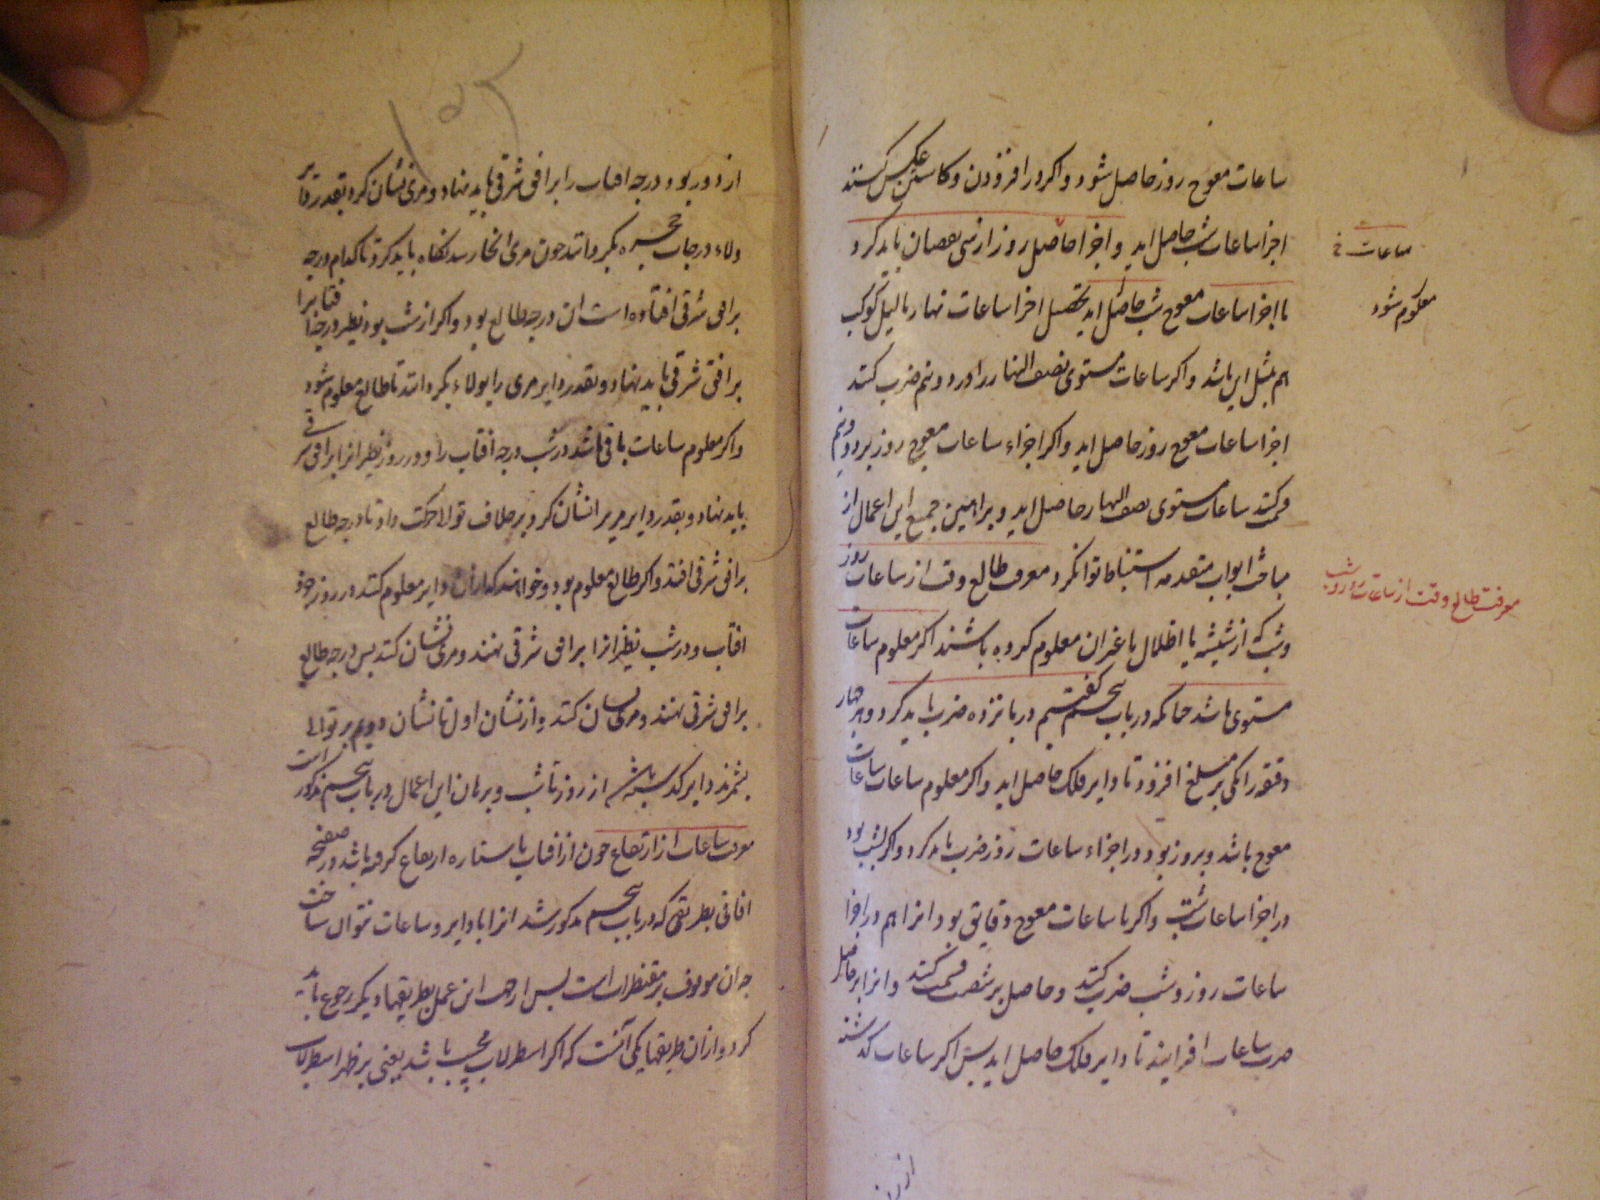 ساعات معوج روز حاصل شود و اکر در افزودن و کاستن عکس کنند
اجزا ساعات شب حاصل اید و اجزا حاصل روز از سی نقصان باید کرد
تا اجزا ساعات معوج شب حاصل اید تحصیل اجزا ساعات نهار یا لیل کوکب
هم بمثل این باشد و اکر ساعات مستوی نصف النهار را در دو ونیم ضرب کنند
اجزا ساعات معوج روز حاصل اید و اکر اجزاء ساعات معوج روز بر دو ونیم
قسمت کنند ساعات مستوی نصف النهار حاصل اید و براهین جمیع این اعمال از
مباحث ابواب متقدمه استنباط توان کرد معرفت طالع وقت از ساعات روز
وشب که از شیشه یا اظلال یا غیر ان معلوم کرده باشند اکر معلوم ساعات
مستوی باشد چنانکه در باب پنجم کفتیم در پانزده ضرب باید کرد و هر چهار
دقیقه را یکی بر مبلغ افزود تا دایر فلک حاصل اید و اکر معلوم ساعات
معوج باشد و بروز بود در اجزاء ساعات روز ضرب باید کرد و اکر بشب بود
در اجزا ساعات شب و اکر با ساعات معوج دقایق بود انرا هم در اجزا
ساعات روز و شب ضرب کنند و حاصل بر شصت قسمت کنند و انرا بر حاصل
ضرب ساعات افزایند تا دایر فلک حاصل اید پس اکر ساعات کذشته
ساعات
معلوم شود
معرفت طالع وقت از ساعات روز و شب
از رو
۱۵۲
از روز بود درجه افتاب را بر افق شرقی باید نهاد و مری نشان کرد بقدر دایر
ولاء درجات حجره بکردانند چون مری انجا رسد نکاه باید کرد تا کدام درجه
بر افق شرقی افتاده است ان درجه طالع بود و اکر از شب بود نظیر درجه افتاب را
بر افق شرقی باید نهاد و بقدر دایر مری را بولاء بکردانند تا طالع معلوم شود
و اکر معلوم ساعات باقی باشد در شب درجه افتاب را و در روز نظیر انرا بر افق شرقی
باید نهاد و بقدر دایر مریرا نشان کرد و بر خلاف توالی حرکت داد تا درجه طالع
بر افق شرقی افتد و اکر طالع معلوم بود و خواهند که از ان دایر معلوم کنند در روز جزو
افتاب و در شب نظیر انرا بر افق شرقی نهند و مری نشان کنند پس درجه طالع
بر افق شرقی نهند و مری نشان کنند و از نشان اول تا نشان دویم بر توالی
بشمرند دایر کذشته باشد از روز تا شب و برهان این اعمال در باب پنجم مذکور است
معرفت ساعات از ارتفاع چون از افتاب یا ستاره ارتفاع کرفته باشد در صفیحه
افاقی بطریقی که در باب پنجم مذکور شد انرا با دایر و ساعات نتوان ساخت
چه ان موقوف بر مقنطرات است پس از جهت این عمل بطریقها دیکر رجوع باید
کرد و از ان طریقها یکی آنست که اکر اسطرلاب مجیب باشد یعنی بر ظهر اسطرلاب